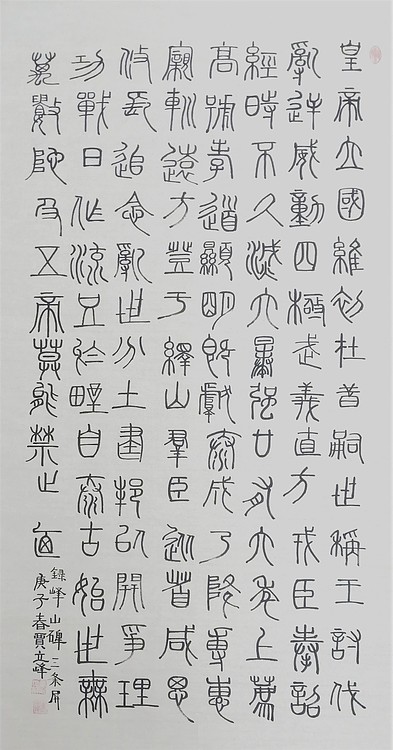 皇帝立國維初在昔嗣世稱王討伐
亂逆威動四極武義直方戎臣奉詔
經時不久滅六暴強廿有六年上薦
高號孝道顯明既獻泰成乃降專惠
親巡遠方登于繹山羣臣從者咸思
攸長追念亂世分土建邦以開爭理
功戰日作流血於野自泰古始世無
萬數陀及五帝莫能禁止廼
錄嶧山碑二条屏
庚子春賈立峰